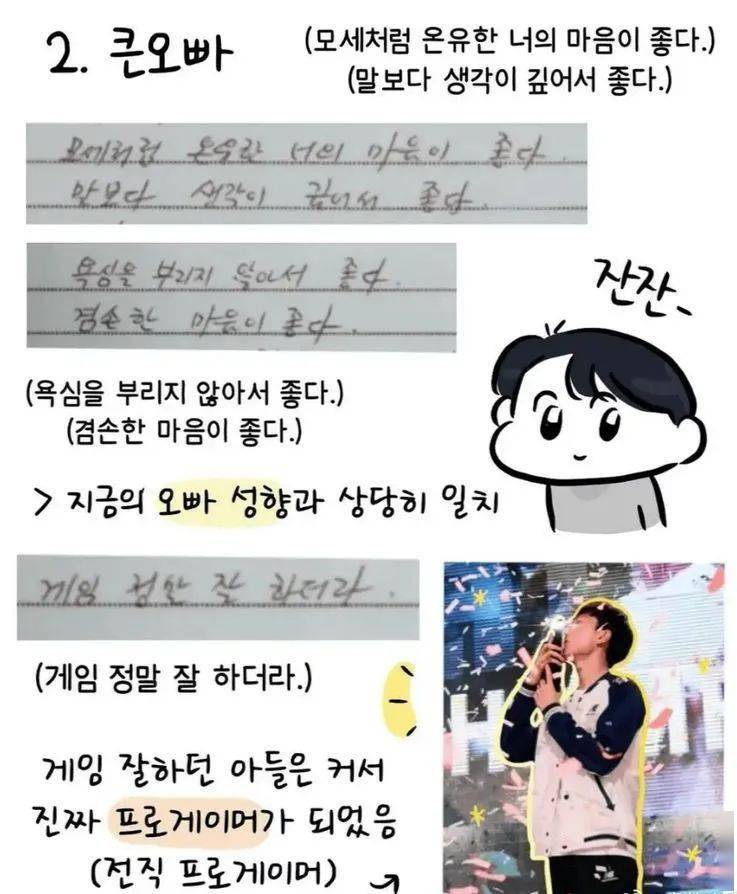 2. 큰오빠
(모세처럼 온유한 너의 마음이 좋다.)
(말보다 생각이 깊어서 좋다.)
모세처럼 온유한 너의 마음이 좋다.
말보다 생각이 깊어서 좋다.
욕심을 부리지 않아서 좋다.
겸손한 마음이 좋다.
잔잔~
(욕심을 부리지 않아서 좋다.)
(겸손한 마음이 좋다.)
> 지금의 오빠 성향과 상당히 일치
게임 정말 잘 하더라.
(게임 정말 잘 하더라.)
게임 잘하던 아들은 커서
진짜 프로게이머가 되었음
(전직 프로게이머)